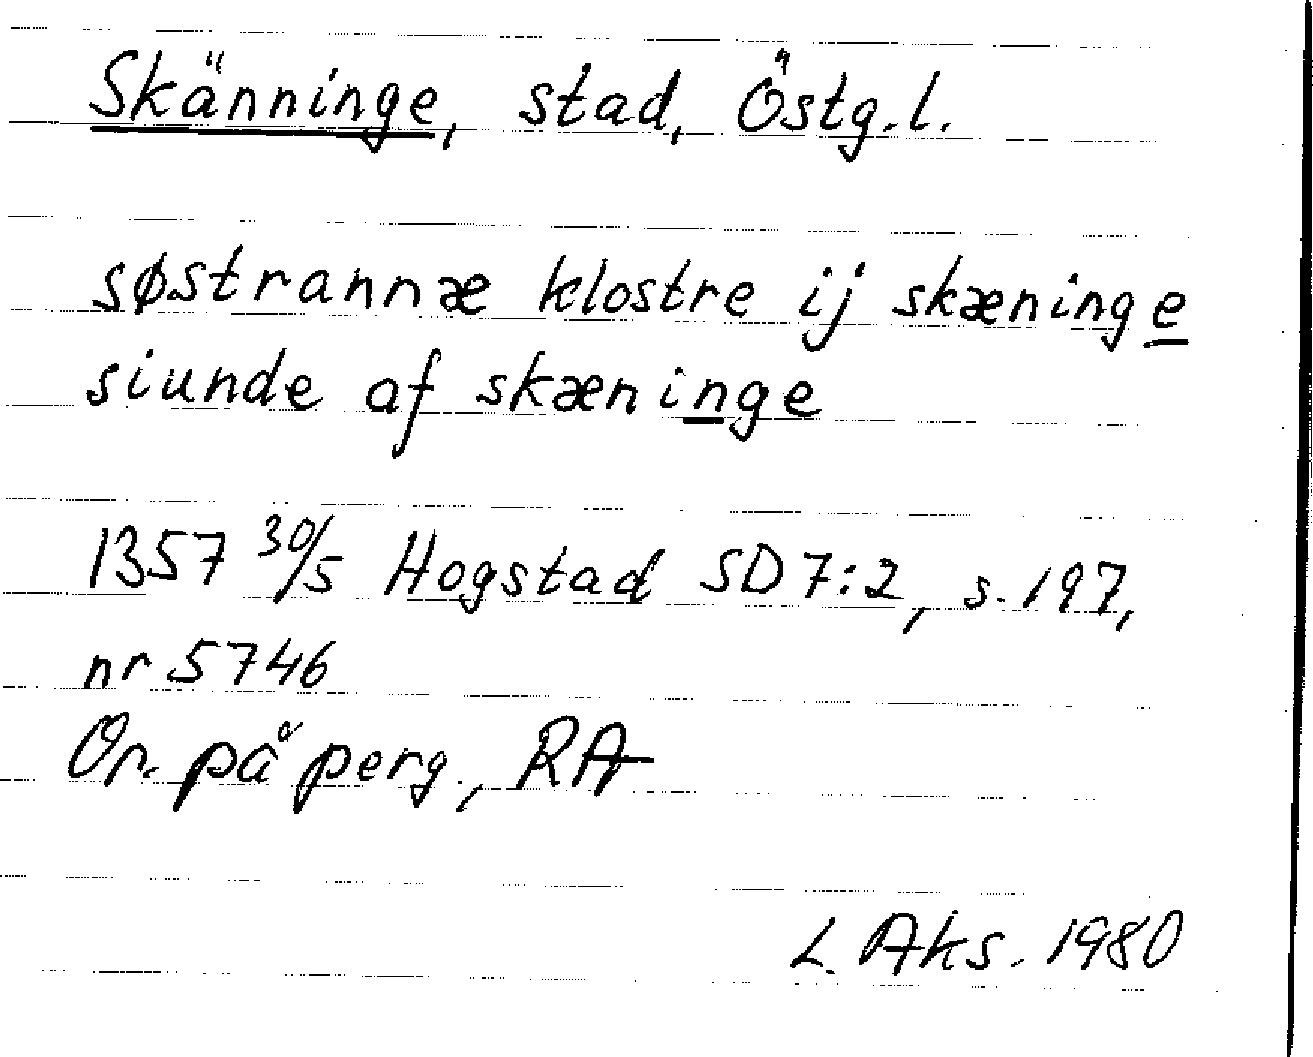 Skänninge, stad, Östg.l.
søstrannæ klostre ij skæninge
siunde af skæninge
1357 30/5 Hogstad SD 7:2, s. 197,
nr 5746
Or. på perg., RA
L. Aks. 1980